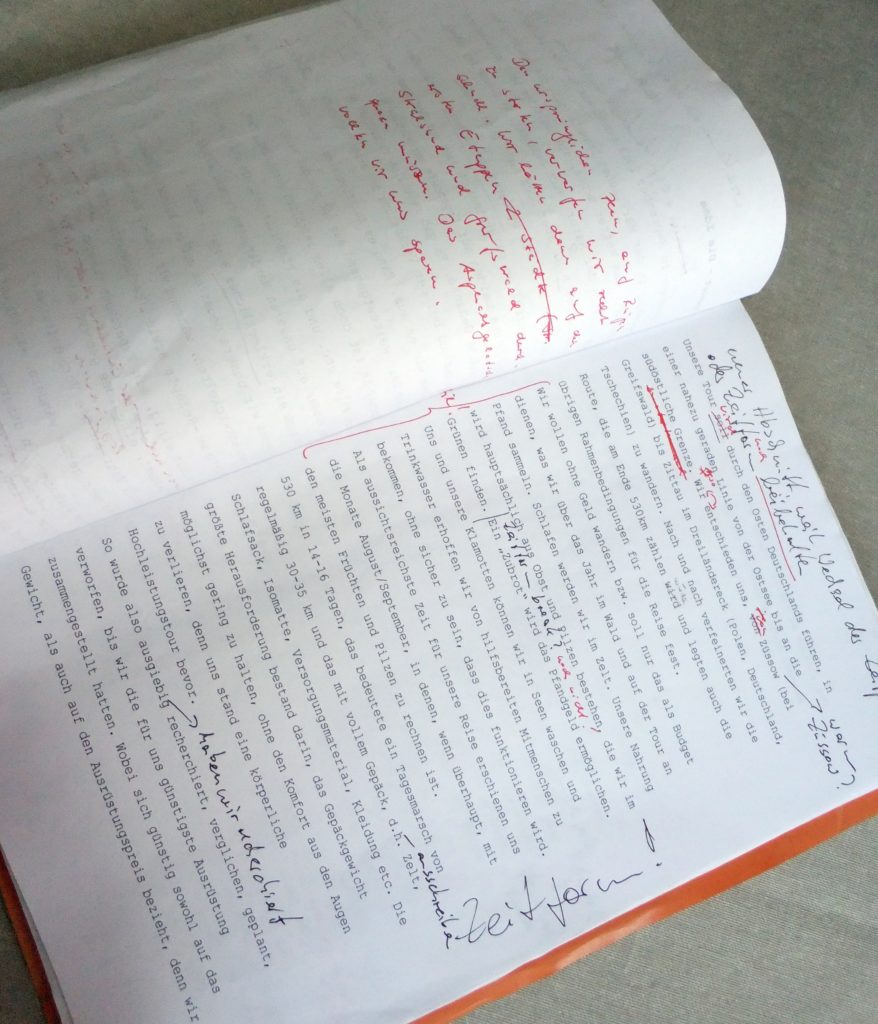 Den ursprünglichen Plan, auf Züssow
zu starten, verwarfen wir recht
schnell. Wir hätten dann auf den
ersten Etappen Städte
Stralsund und Greifswald durch-
queren müssen. Das
wollten wir uns sparen.
neuer Abschnitt, weil Wechsel der Zeitform
des Zeitform beibehalten
war
Züssow?
Unsere Tour soll durch den Osten Deutschlands führen, in
wird
einer nahezu geraden Linie von der Ostsee bis an die
südöstliche Grenze. Wir entschieden uns, Züssow (bei
Greifswald) bis Zittau im Dreiländereck (Polen, Deutschland,
Tschechien) zu wandern. Nach und nach verfeinerten wir die
Route, die am Ende 530km zählen wird und legten auch die
übrigen Rahmenbedingungen für die Reise fest.
Wir wollen ohne Geld wandern bzw. soll nur das als Budget
dienen, was wir über das Jahr im Wald und auf der Tour an
Pfand sammeln. Schlafen werden wir im Zelt. Unsere Nahrung
wird hauptsächlich aus Obst und Pilzen bestehen, die wir im
Grünen finden. Ein „Zubrot" wird das Pfandgeld ermöglichen.
Zeitform
Uns und unsere Klamotten können wir in Seen waschen und
Trinkwasser erhoffen wir von hilfsbereiten Mitmenschen zu
bekommen, ohne sicher zu sein, dass dies funktionieren wird.
Zeitform
Als aussichtsreichste Zeit für unsere Reise erschienen uns
die Monate August/September, in denen, wenn überhaupt, mit
den meisten Früchten und Pilzen zu rechnen ist.
530 km in 14-16 Tagen, das bedeutete ein Tagesmarsch von
regelmäßig 30-35 km und das mit vollem Gepäck, d.h. Zelt,
ausschreiben
Schlafsack, Isomatte, Versorgungsmaterial, Kleidung etc. Die
größte Herausforderung bestand darin, das Gepäckgewicht
möglichst gering zu halten, ohne den Komfort aus den Augen
zu verlieren, denn uns stand eine körperliche
Hochleistungstour bevor.
haben wir recherchiert
So wurde also ausgiebig recherchiert, verglichen, geplant,
verworfen, bis wir die für uns günstigste Ausrüstung
zusammengestellt hatten. Wobei sich günstig sowohl auf das
Gewicht, als auch auf den Ausrüstungspreis bezieht, denn wir